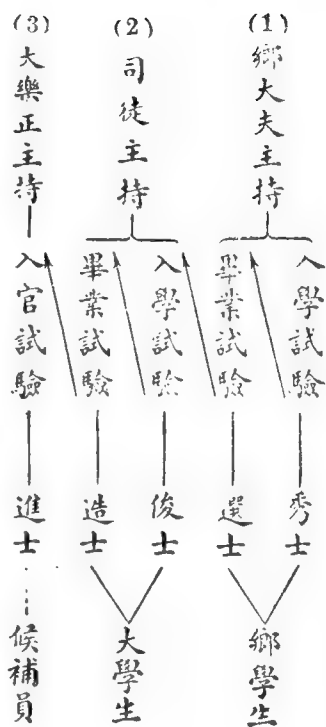 (1)
鄉大夫主持
入學試驗
秀士
畢業試驗
選士
鄉學生
(2)
司徒主持
入學試驗
俊士
畢業試驗
造士
大學生
(3)
大樂正主持
入官試驗
進士
候補員